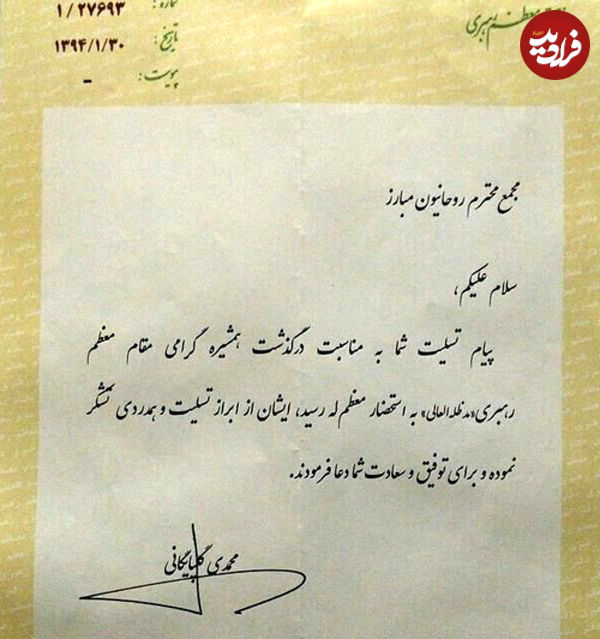 شماره: ۱/۲۷۶۹۳
تاریخ: ۱۳۹۴/۱/۳۰
پیوست: -
معظم رهبری
فرادید
مجمع محترم روحانیون مبارز
سلام علیکم،
پیام تسلیت شما به مناسبت درگذشت همشیره گرامی مقام معظم
رهبری«مدظله‌العالی» به استحضار معظم‌له رسید، ایشان از ابراز تسلیت و همدردی تشکر
نموده و برای توفیق و سعادت شما دعا فرمودند.
محمدی گلپایگانی